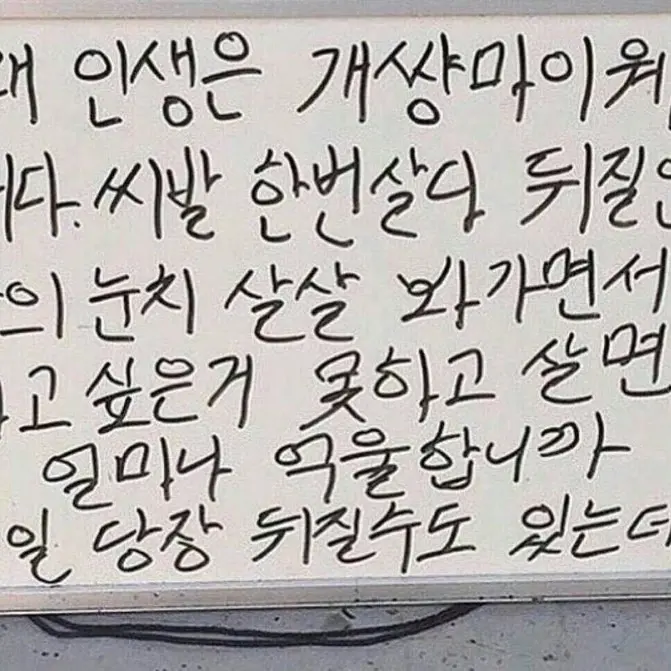 인생은 개썅마이웨
씨발 한번살다 뒤질인
눈치 살살 봐가면서
하고 싶은거 못하고 살면
얼마나 억울합니까
일 당장 뒤질수도 있는데